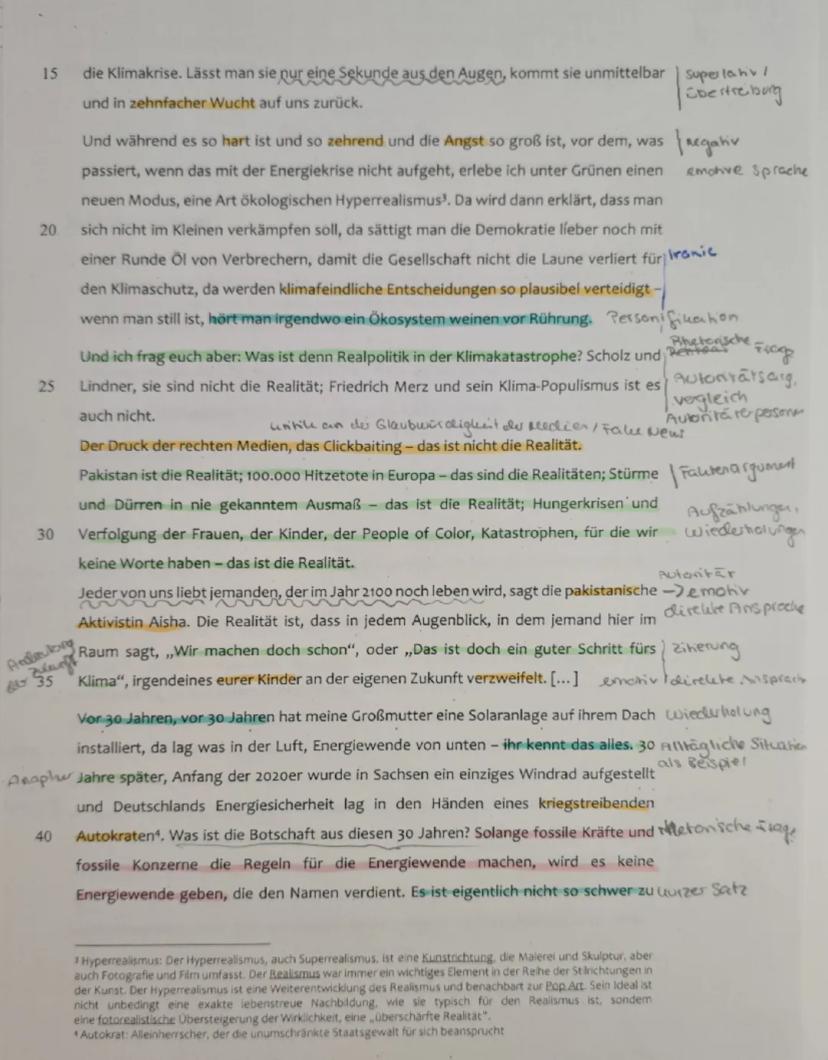 15 die Klimakrise. Lässt man sie nur eine Sekunde aus den Augen, kommt sie unmittelbar
superlativ /
Übertreibung
und in zehnfacher Wucht auf uns zurück.
Und während es so hart ist und so zehrend und die Angst so groß ist, vor dem, was
negativ
passiert, wenn das mit der Energiekrise nicht aufgeht, erlebe ich unter Grünen einen
emotive Sprache
neuen Modus, eine Art ökologischen Hyperrealismus³. Da wird dann erklärt, dass man
20 sich nicht im Kleinen verkämpfen soll, da sättigt man die Demokratie lieber noch mit
einer Runde Öl von Verbrechern, damit die Gesellschaft nicht die Laune verliert für
Ironie
den Klimaschutz, da werden klimafeindliche Entscheidungen so plausibel verteidigt –
wenn man still ist, hört man irgendwo ein Ökosystem weinen vor Rührung.
Personifikation
Rhetorische Frage
Und ich frag euch aber: Was ist denn Realpolitik in der Klimakatastrophe? Scholz und
25 Lindner, sie sind nicht die Realität; Friedrich Merz und sein Klima-Populismus ist es
Autoritätsarg.
vergleich
auch nicht.
Autoritätsperson
kritik an der Glaubwürdigkeit der Medien / Fake News
Der Druck der rechten Medien, das Clickbaiting – das ist nicht die Realität.
Pakistan ist die Realität; 100.000 Hitzetote in Europa – das sind die Realitäten; Stürme
Faktenargument
und Dürren in nie gekanntem Ausmaß – das ist die Realität; Hungerkrisen und
Aufzählungen,
30 Verfolgung der Frauen, der Kinder, der People of Color, Katastrophen, für die wir
Wiederholungen
keine Worte haben – das ist die Realität.
Autorität
Jeder von uns liebt jemanden, der im Jahr 2100 noch leben wird, sagt die pakistanische
-> emotiv
direkte Ansprache
Aktivistin Aisha. Die Realität ist, dass in jedem Augenblick, in dem jemand hier im
Raum sagt, „Wir machen doch schon“, oder „Das ist doch ein guter Schritt fürs
Zitierung
35 Klima“, irgendeines eurer Kinder an der eigenen Zukunft verzweifelt. [...]
emotiv direkte Ansprach
Vor 30 Jahren, vor 30 Jahren hat meine Großmutter eine Solaranlage auf ihrem Dach
Wiederholung
installiert, da lag was in der Luft, Energiewende von unten – ihr kennt das alles. 30
Alltägliche Situation
als Beispiel
Anapher
Jahre später, Anfang der 2020er wurde in Sachsen ein einziges Windrad aufgestellt
und Deutschlands Energiesicherheit lag in den Händen eines kriegstreibenden
40 Autokraten⁴. Was ist die Botschaft aus diesen 30 Jahren? Solange fossile Kräfte und
Rhetorische Frage
fossile Konzerne die Regeln für die Energiewende machen, wird es keine
Energiewende geben, die den Namen verdient. Es ist eigentlich nicht so schwer zu
kurzer Satz
³ Hyperrealismus: Der Hyperrealismus, auch Superrealismus, ist eine Kunstrichtung, die Malerei und Skulptur, aber
auch Fotografie und Film umfasst. Der Realismus war immer ein wichtiges Element in der Reihe der Stilrichtungen in
der Kunst. Der Hyperrealismus ist eine Weiterentwicklung des Realismus und benachbart zur Pop Art. Sein Ideal ist
nicht unbedingt eine exakte lebenstreue Nachbildung, wie sie typisch für den Realismus ist, sondern
eine fotorealistische Übersteigerung der Wirklichkeit, eine „überschärfte Realität“.
⁴ Autokrat: Alleinherrscher, der die unumschränkte Staatsgewalt für sich beansprucht